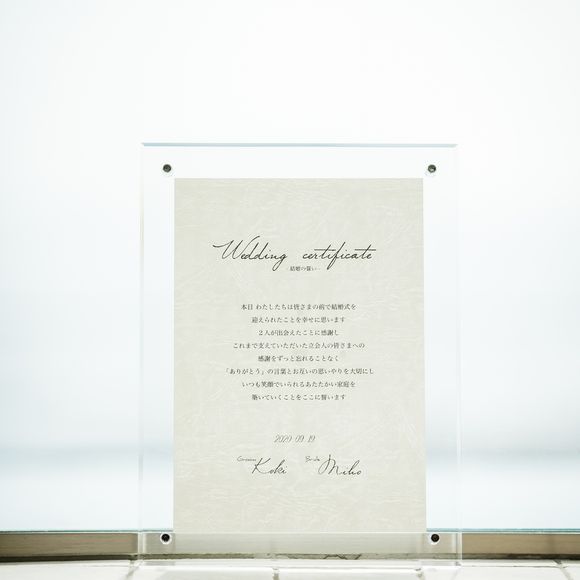 Wedding certificate
- 結婚の誓い -
本日 わたしたちは皆さまの前で結婚式を
迎えられたことを幸せに思います
2人が出会えたことに感謝し
これまで支えていただいた立会人の皆さまへの
感謝をずっと忘れることなく
「ありがとう」の言葉とお互いの思いやりを大切にし
いつも笑顔でいられるあたたかい家庭を
築いていくことをここに誓います
2020. 09. 19
Groom Koki Bride Miho